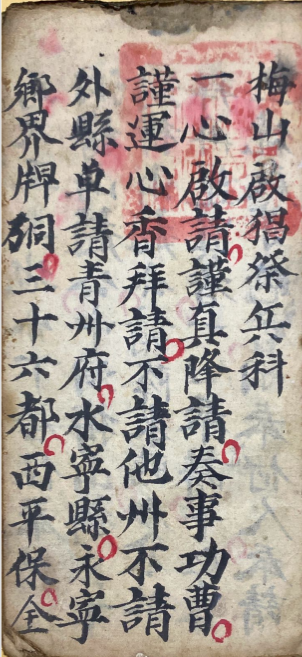 梅山啟猖祭兵科
一心啟請謹真降請奏事功曹
謹運心香拜請不請他州不請
外縣卓請青州府水寧縣永寧
鄉界牌峒三十六都西平保全